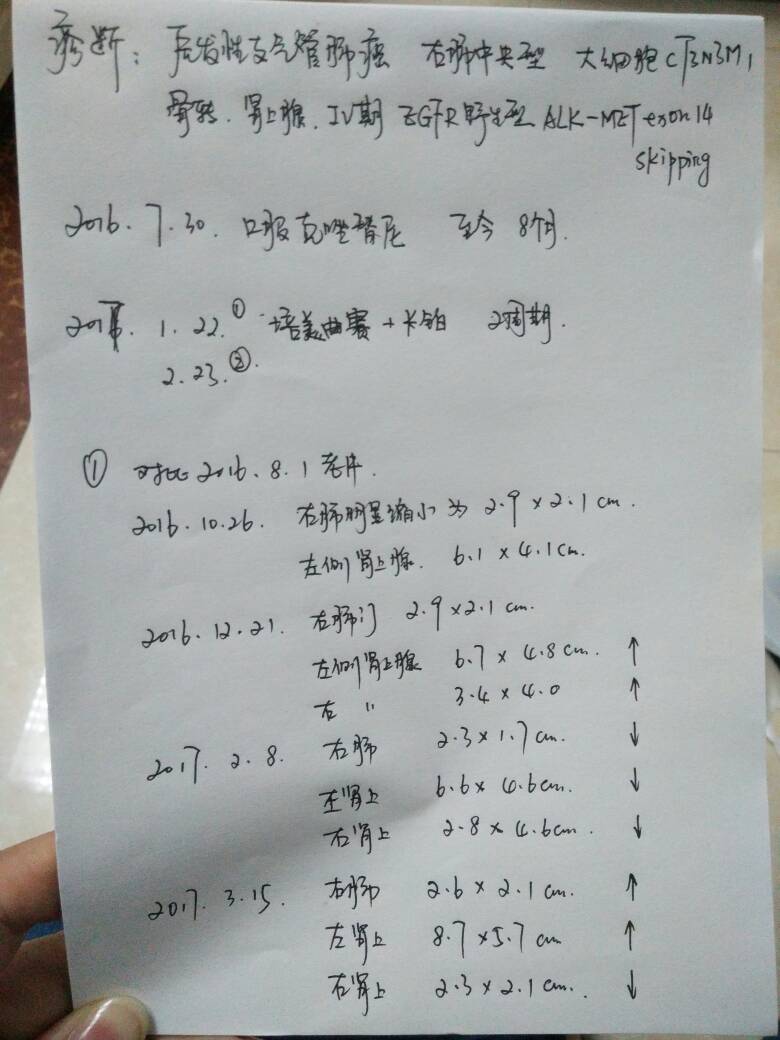 诊断: 原发性支气管肺癌 右肺中央型 大细胞 cT3N3M1
骨转. 肾上腺. IV期 EGFR野生型 ALK- MET exon14
skipping
2016. 7. 30. 口服克唑替尼 至今 8个月.
2017. 1. 22.① 培美曲赛 + 卡铂 2周期.
2. 23.②.
① 对比 2016. 8. 1 老片.
2016. 10. 26. 右肺明显缩小为 2.9 × 2.1 cm.
左侧肾上腺. 6.1 × 4.1 cm.
2016. 12. 21. 右肺门 2.9 × 2.1 cm.
左侧肾上腺 6.7 × 4.8 cm. ↑
右 〃 3.4 × 4.0 ↑
2017. 2. 8. 右肺 2.3 × 1.7 cm. ↓
左肾上 6.6 × 4.6 cm. ↓
右肾上 2.8 × 4.6 cm. ↓
2017. 3. 15. 右肺 2.6 × 2.1 cm. ↑
左肾上 8.7 × 5.7 cm ↑
右肾上 2.3 × 2.1 cm. ↓